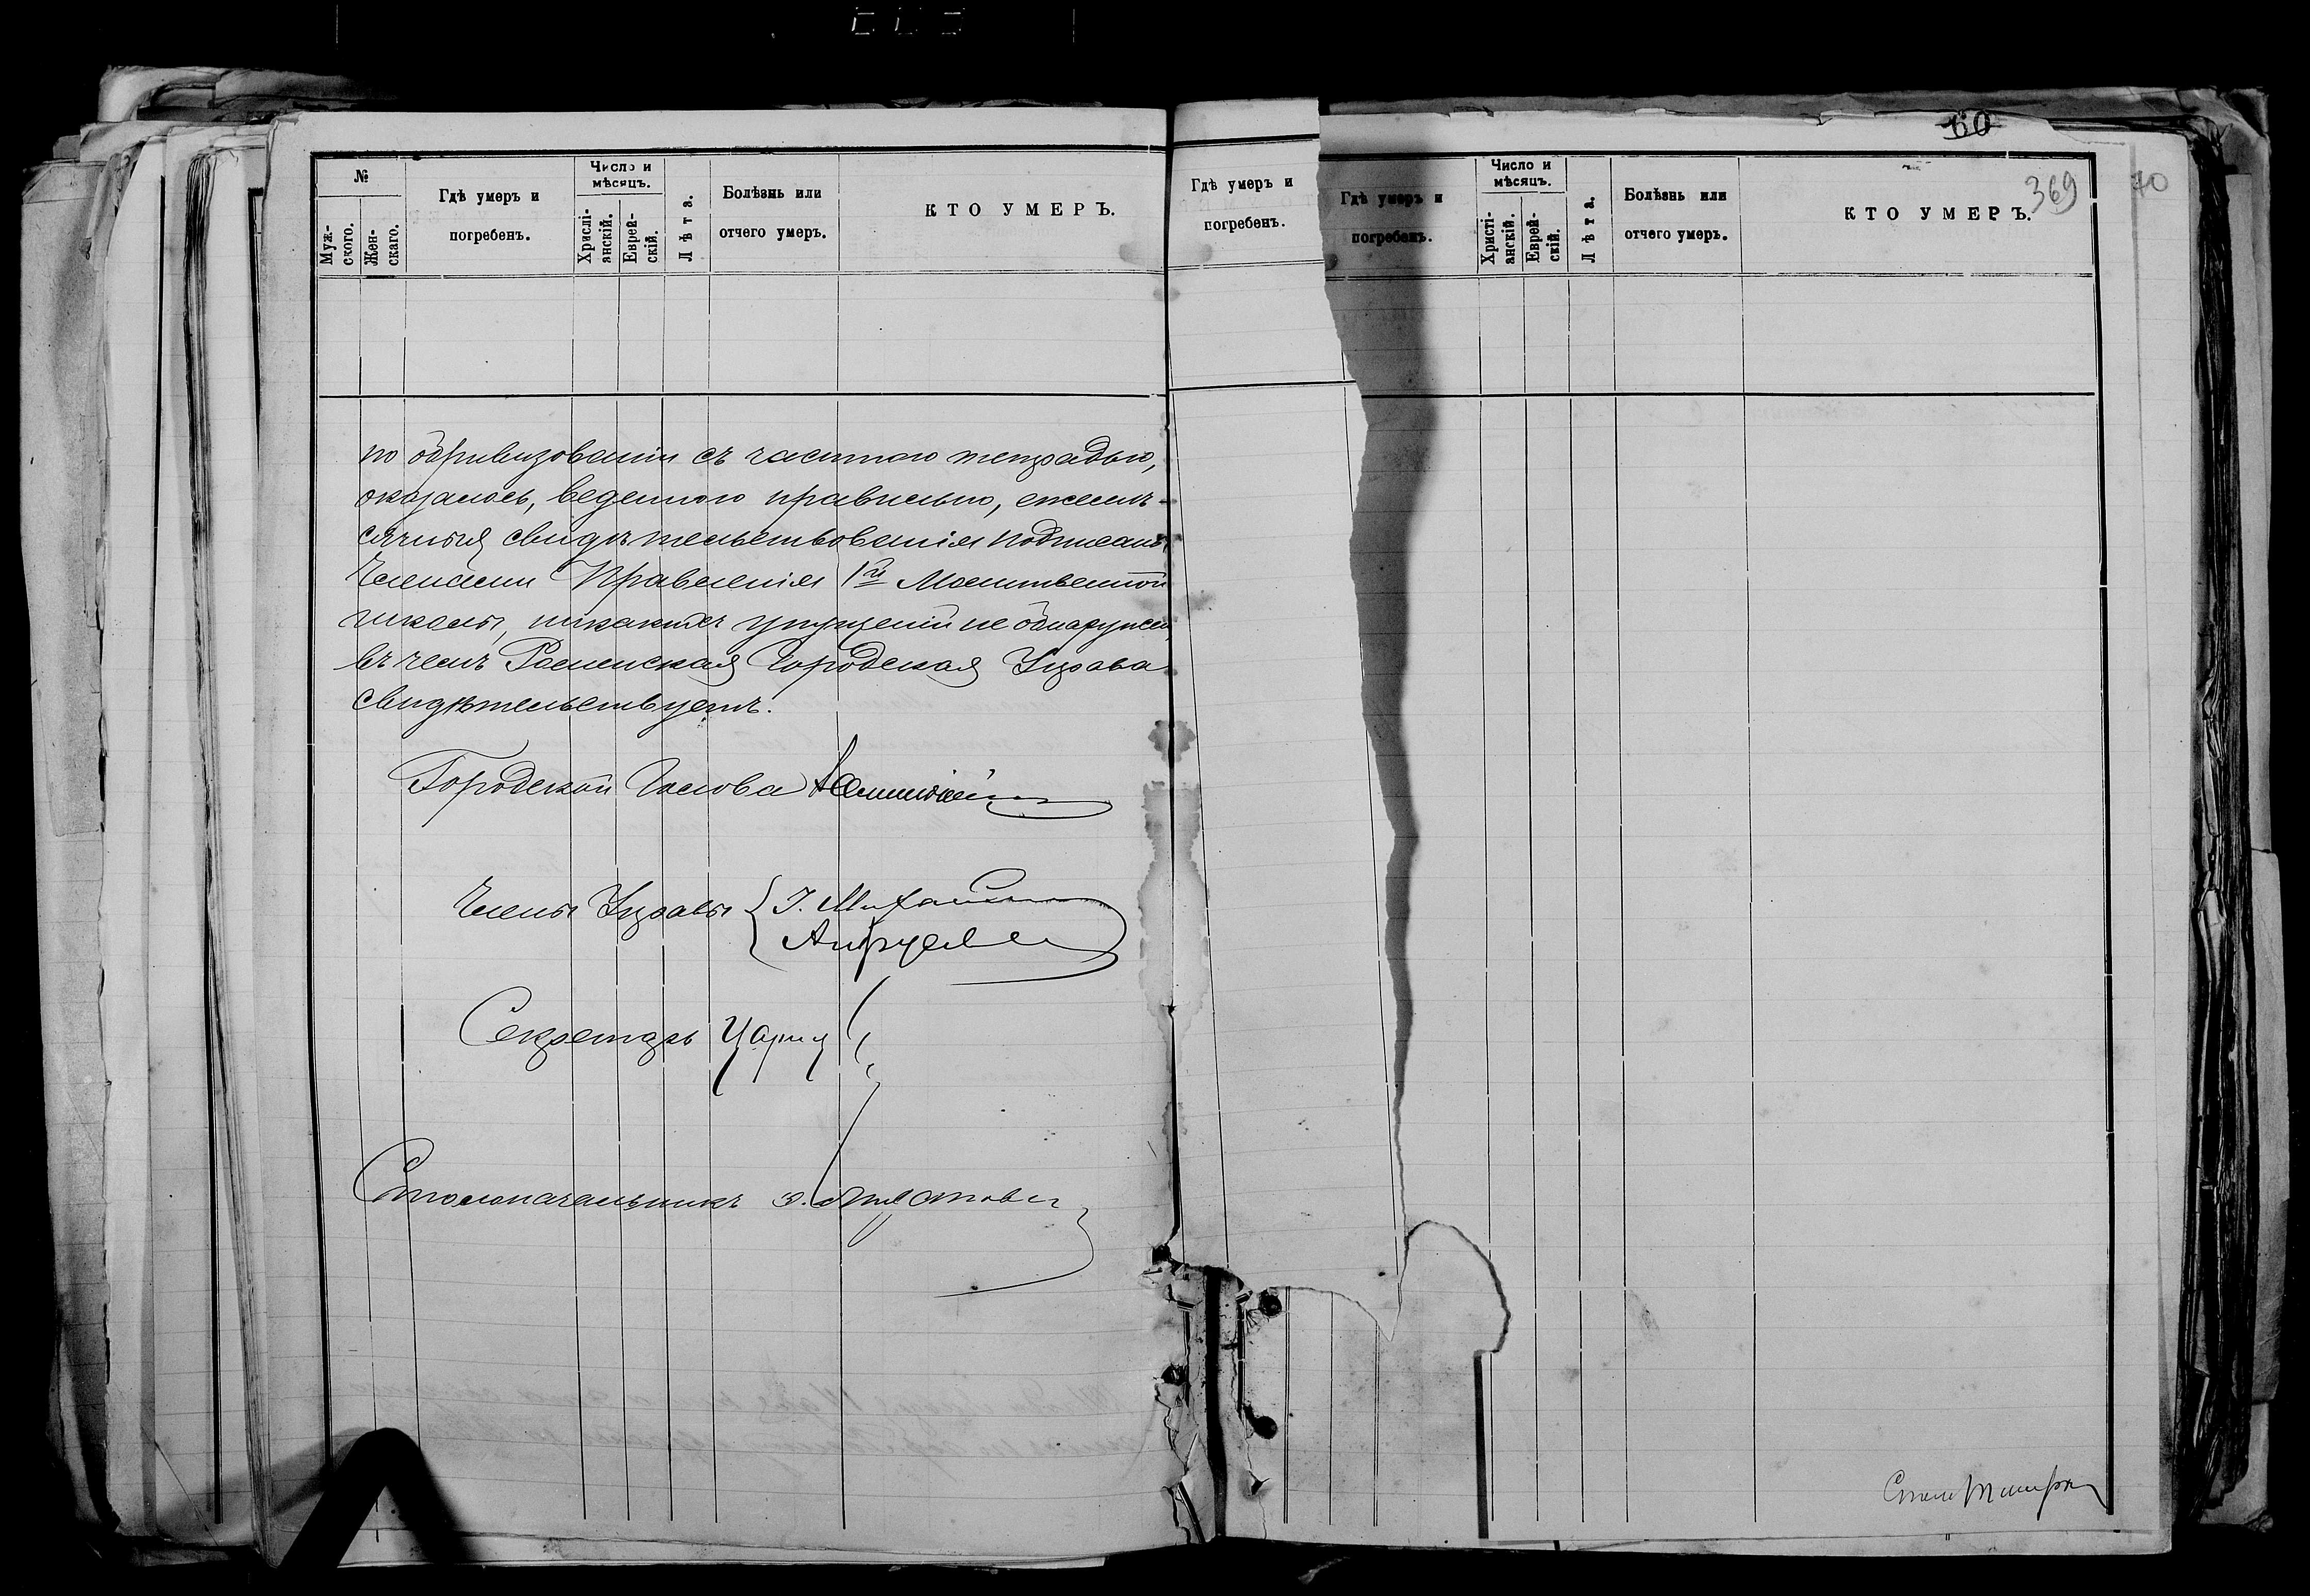 №
Муж-
скаго.
Жен-
скаго.
Гдѣ умеръ и
погребенъ.
Число и
мѣсяцъ.
Христі-
анскій.
Еврей-
скій.
Лѣта.
Болѣзнь или
отчего умеръ.
КТО УМЕРЪ.
по обревизованіи съ частною тетрадью,
оказалось, веденною правильно, ежемѣ-
сячныя свидѣтельствованія подписаны
Членами Правленія 1й Молитвенной
школы, никакихъ упущеній не обнаружено,
въ чемъ Роменская Городская Управа
свидѣтельствуетъ.
Городской Голова
Члены Управы
Секретарь
Столоначальникъ
Гдѣ умеръ и
погребенъ.
60
369
70
Гдѣ умеръ и
погребенъ.
Число и
мѣсяцъ.
Христі-
анскій.
Еврей-
скій.
Лѣта.
Болѣзнь или
отчего умеръ.
КТО УМЕРЪ.